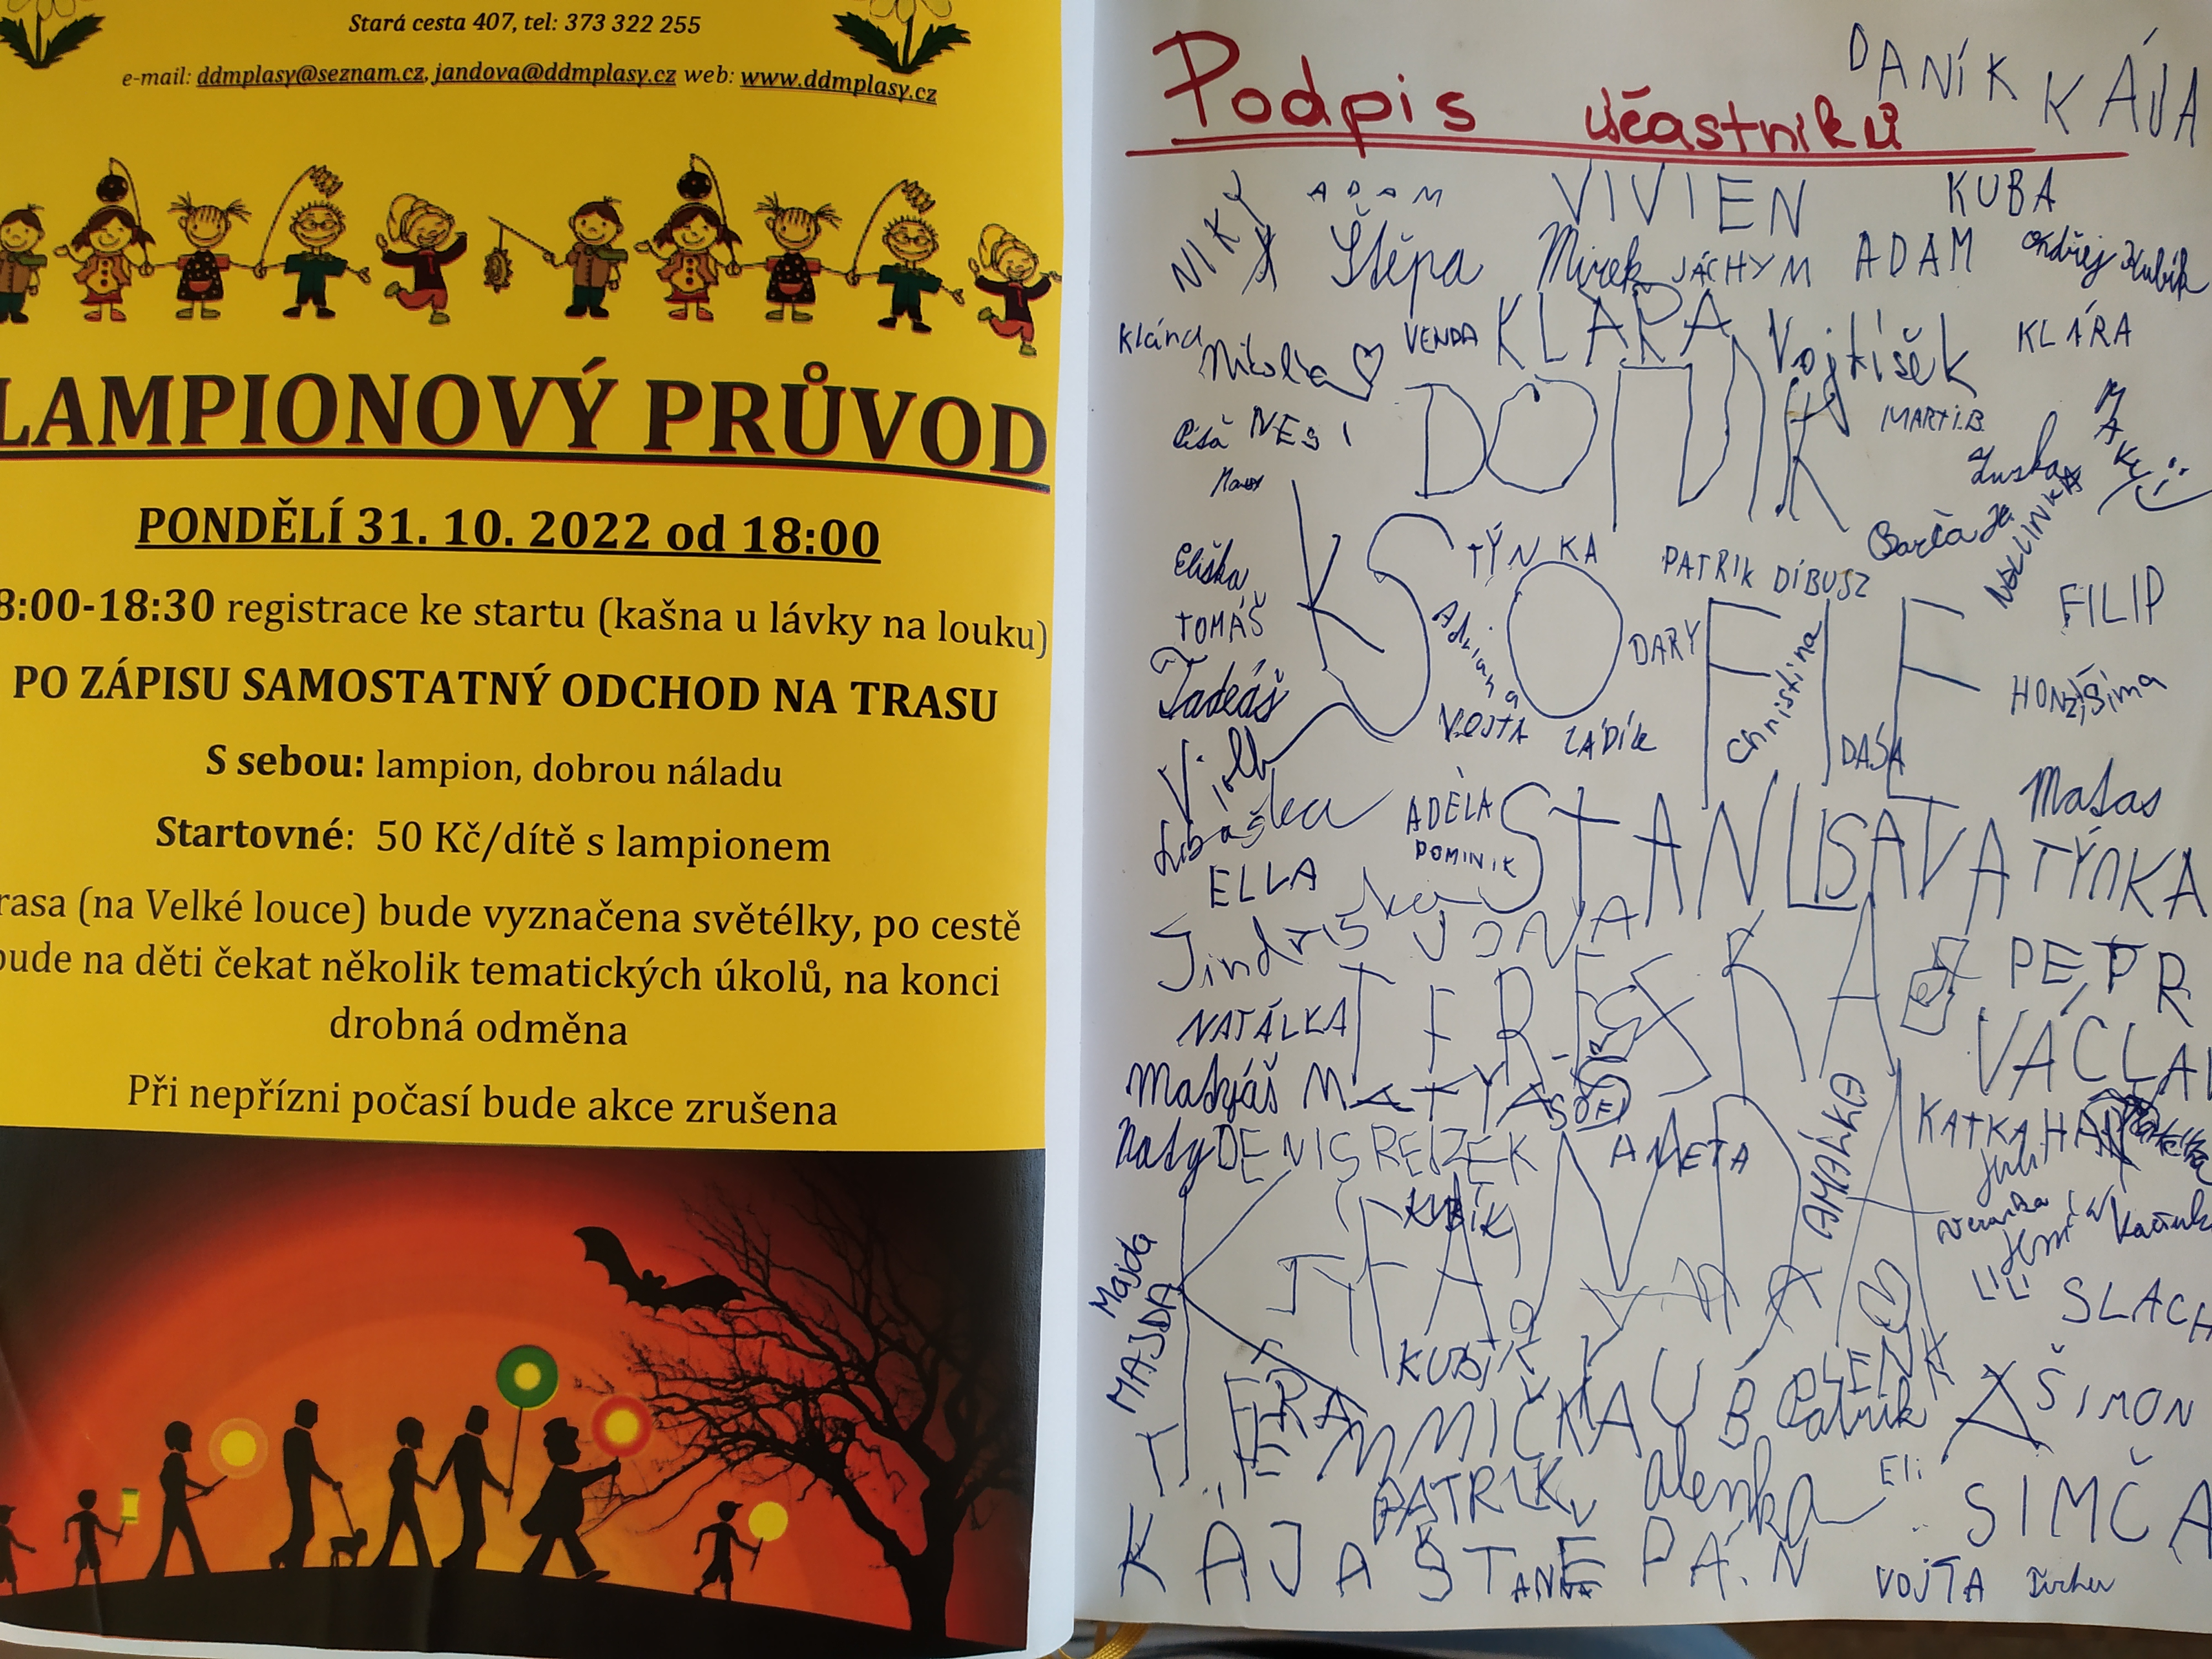 Stará cesta 407, tel: 373 322 255
e-mail: ddmplasy@seznam.cz, jandova@ddmplasy.cz web: www.ddmplasy.cz
LAMPIONOVÝ PRŮVOD
PONDĚLÍ 31. 10. 2022 od 18:00
8:00-18:30 registrace ke startu (kašna u lávky na louku)
PO ZÁPISU SAMOSTATNÝ ODCHOD NA TRASU
S sebou: lampion, dobrou náladu
Startovné: 50 Kč/dítě s lampionem
rasa (na Velké louce) bude vyznačena světélky, po cestě
bude na děti čekat několik tematických úkolů, na konci
drobná odměna
Při nepřízni počasí bude akce zrušena
DANÍK KÁJA
Podpis účastníků
NIKY ADAM VIVIEN KUBA
Štěpa Mirek JÁCHYM ADAM Ondřej Kubík
VENDA KLARA Vojtíšek KLÁRA
Nikola
NESI DOMINIK MARTI.B.
MAKY
Zuska
Barča
TÝNKA PATRIK DÍBUSZ
Eliška FILIP
TOMÁŠ Adriana SOFIE DARY Christina
Tadeáš HONZ Šima
VOJTA LÁDÍK DAŠA
Matas
Libuška ADÉLA STANISLAVA TÝNKA
DOMINIK
ELLA
Jindriska JONA PETR
NATÁLKA TEREZKA VÁCLAV
Matyáš MATYÁŠ AMÁLKA
KATKA
Naty DENIS REIZEK ANETA
KUBÍK VANDA
Verunka
Majda
LILI
MAJDA SLACH
KUBÍK
LENKA
EMMIČKA KUBA Patrik ŠIMON
PATRIK alenka Eli
SIMČA
KÁJA ŠTĚPÁN
VOJTA